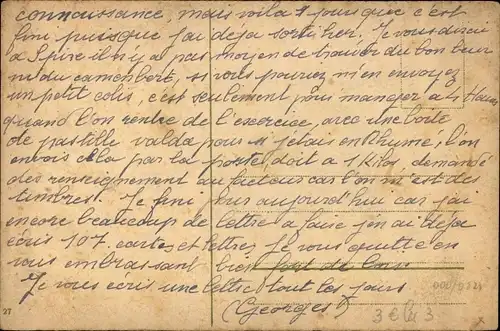 connaissance, mais voila 4 jours que c'est
fini puisque j'ai deja sorti hier. Je vous dirai
a Spire il n'y a pas moyen de trouver du bon beurre
ni du camenbert, si vous pourriez m'en envoyez
un petit colis, c'est seulement pour manger a 4 Heures
quand l'on rentre de l'exercice, avec une boite
de pastille valda pour si j'etais enrhumé, l'on
envois cela par la poste, doit a 1 Kilos, demandé
des renseignement au facteur car l'on met des
timbres. Je fini pour aujourd'hui car j'ai
encore beaucoup de lettre a faire j'en ai deja
ecris 107 cartes et lettres Je vous quitte en
vous embrassant bien fort de loin
Je vous ecris une lettre tout les jours
(Georges)
27
3 €